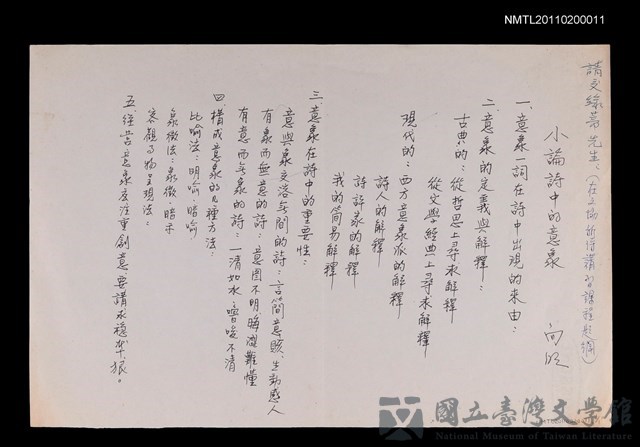 NMTL20110200011
請交綠蒂先生、(在文協所得講習課程題綱)
小論詩中的意象 向明
一、意象一詞在詩中出現的來由：
二、意象的定義與解釋：
古典的：從哲思上尋求解釋
從文學經典上尋求解釋
現代的：西方意象派的解釋
詩人的解釋
詩評家的解釋
我的簡易解釋
三、意象在詩中的重要性：
意與象交溶無間的詩：言簡意賅、生動感人
有象而無意的詩：意圖不明、晦澀難懂
有意而無象的詩：一清如水、嚕唆不清
四、構成意象的幾種方法：
比喻法：明喻、暗喻
象徵法：象徵、暗示
客觀事物呈現法：
五、經營意象應注重創意、要講求穩準狠。
國立臺灣文學館
National Museum of Taiwan Literature